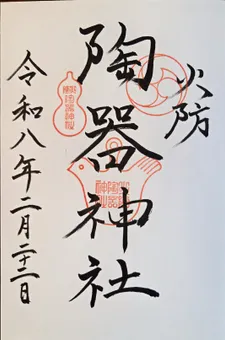 火防
陶器神社
令和八年二月二十二日